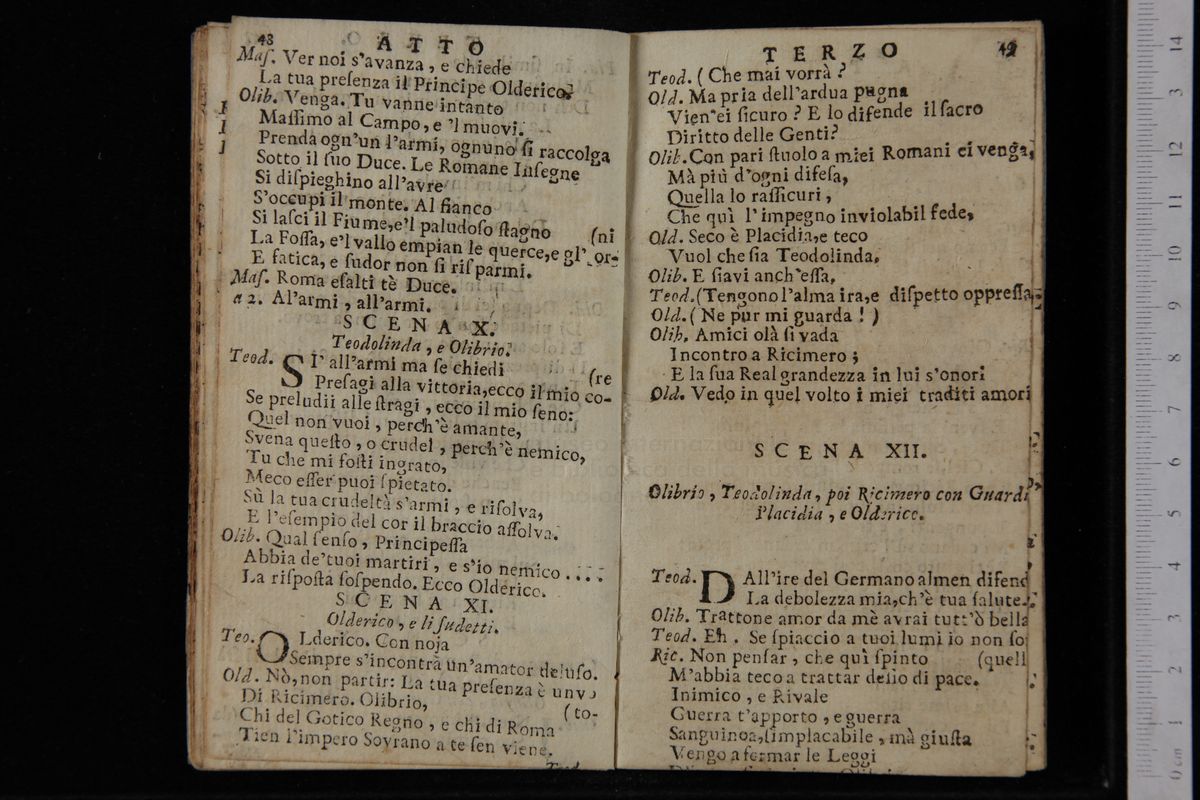 48 ATTO
Maſ. Ver noi s'avanza, e chiede
La tua preſenza il Principe Olderico?
Olib. Venga. Tu vanne intanto
Maſſimo al Campo, e 'l muovi.
Prenda ogn'un l'armi, ognuno ſi raccolga
Sotto il ſuo Duce. Le Romane Inſegne
Si diſpieghino all'avre
S'occupi il monte. Al fianco
Si laſci il Fiume, e'l paludoſo ſtagno (ni
La Foſſa, e'l vallo empian le querce, e gl'or-
E fatica, e ſudor non ſi riſparmi.
Maſ. Roma eſalti tè Duce.
a 2. Al'armi, all'armi.
SCENA X.
Teodolinda, e Olibrio.
Teod. SI' all'armi ma ſe chiedi (re
Preſagi alla vittoria, ecco il mio co-
Se preludii alle ſtragi, ecco il mio ſeno:
Quel non vuoi, perch'è amante,
Svena queſto, o crudel, perch'è nemico,
Tu che mi foſti ingrato,
Meco eſſer puoi ſpietato.
Sù la tua crudeltà s'armi, e riſolva,
E l'eſempio del cor il braccio aſſolva.
Olib. Qual ſenſo, Principeſſa
Abbia de'tuoi martiri, e s'io nemico....
La riſpoſta ſoſpendo. Ecco Olderico.
SCENA XI.
Olderico, e li ſudetti.
Teo. OLderico. Con noja
Sempre s'incontra un'amator deluſo.
Old. Nò, non partir: La tua preſenza è unvo
Di Ricimero. Olibrio, (to-
Chi del Gotico Regno, e chi di Roma
Tien l'impero Sovrano a te ſen viene.
Teod.
TERZO 49
Teod. (Che mai vorrà?
Old. Ma pria dell'ardua pugna
Vien'ei ſicuro? E lo difende il ſacro
Diritto delle Genti?
Olib. Con pari ſtuolo a miei Romani ei venga,
Mà più d'ogni difeſa,
Quella lo raſſicuri,
Che quì l'impegno inviolabil fede,
Old. Seco è Placidia, e teco
Vuol che ſia Teodolinda.
Olib. E ſiavi anch'eſſa.
Teod. (Tengono l'alma ira, e diſpetto oppreſſa
Old. (Ne pur mi guarda!)
Olib. Amici olà ſi vada
Incontro a Ricimero;
E la ſua Real grandezza in lui s'onori
Old. Vedo in quel volto i miei traditi amori
SCENA XII.
Olibrio, Teodolinda, poi Ricimero con Guardi
Placidia, e Olderico.
Teod. DAll'ire del Germano almen difend
La debolezza mia, ch'è tua ſalute.
Olib. Trattone amor da mè avrai tutt'ò bella
Teod. Eh. Se ſpiaccio a tuoi lumi io non ſo
Ric. Non penſar, che quì ſpinto (quell
M'abbia teco a trattar deſio di pace.
Inimico, e Rivale
Guerra t'apporto, e guerra
Sanguinoa, ſimplacabile, mà giuſta
Vengo a fermar le Leggi